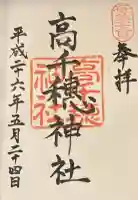 奉拝
高千穂神社
平成二十六年五月二十四日